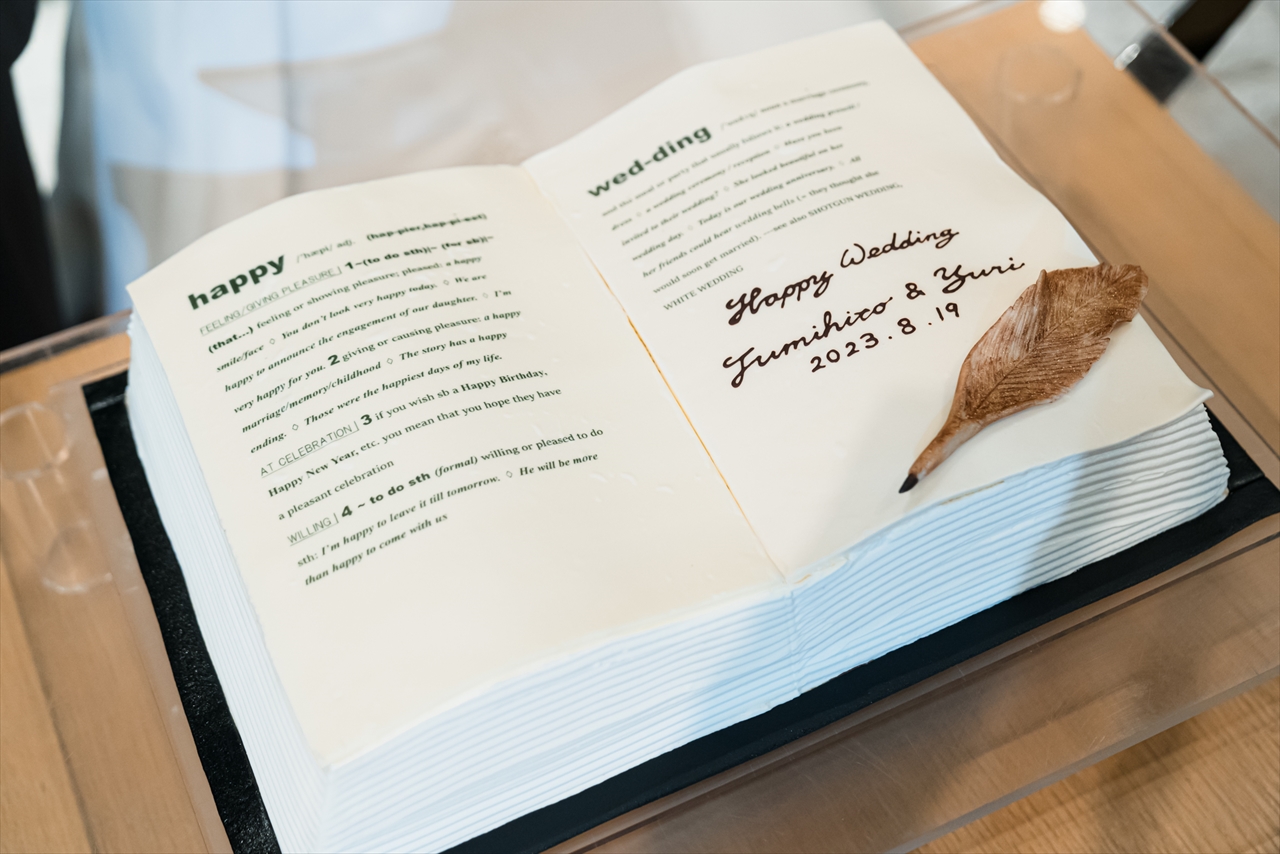 happy /'hæpi/ adj. (hap·pier,hap·pi·est)
FEELING/GIVING PLEASURE | 1~(to do sth)|~ (for sb)|~
(that...) feeling or showing pleasure; pleased: a happy
smile/face ◇ You don't look very happy today. ◇ We are
happy to announce the engagement of our daughter. ◇ I'm
very happy for you. 2 giving or causing pleasure: a happy
marriage/memory/childhood ◇ The story has a happy
ending. ◇ Those were the happiest days of my life.
AT CELEBRATION | 3 if you wish sb a Happy Birthday,
Happy New Year, etc. you mean that you hope they have
a pleasant celebration
WILLING | 4 ~ to do sth (formal) willing or pleased to do
sth: I'm happy to leave it till tomorrow. ◇ He will be more
than happy to come with us
wed·ding noun a marriage ceremony,
and the meal or party that usually follows it: a wedding present/
dress ◇ a wedding ceremony/ reception ◇ Have you been
invited to their wedding? ◇ She looked beautiful on her
wedding day. ◇ Today is our wedding anniversary. ◇ All
her friends could hear wedding bells (= they thought she
would soon get married). —see also SHOTGUN WEDDING,
WHITE WEDDING
Happy Wedding
Fumihito & Yuri
2023.8.19